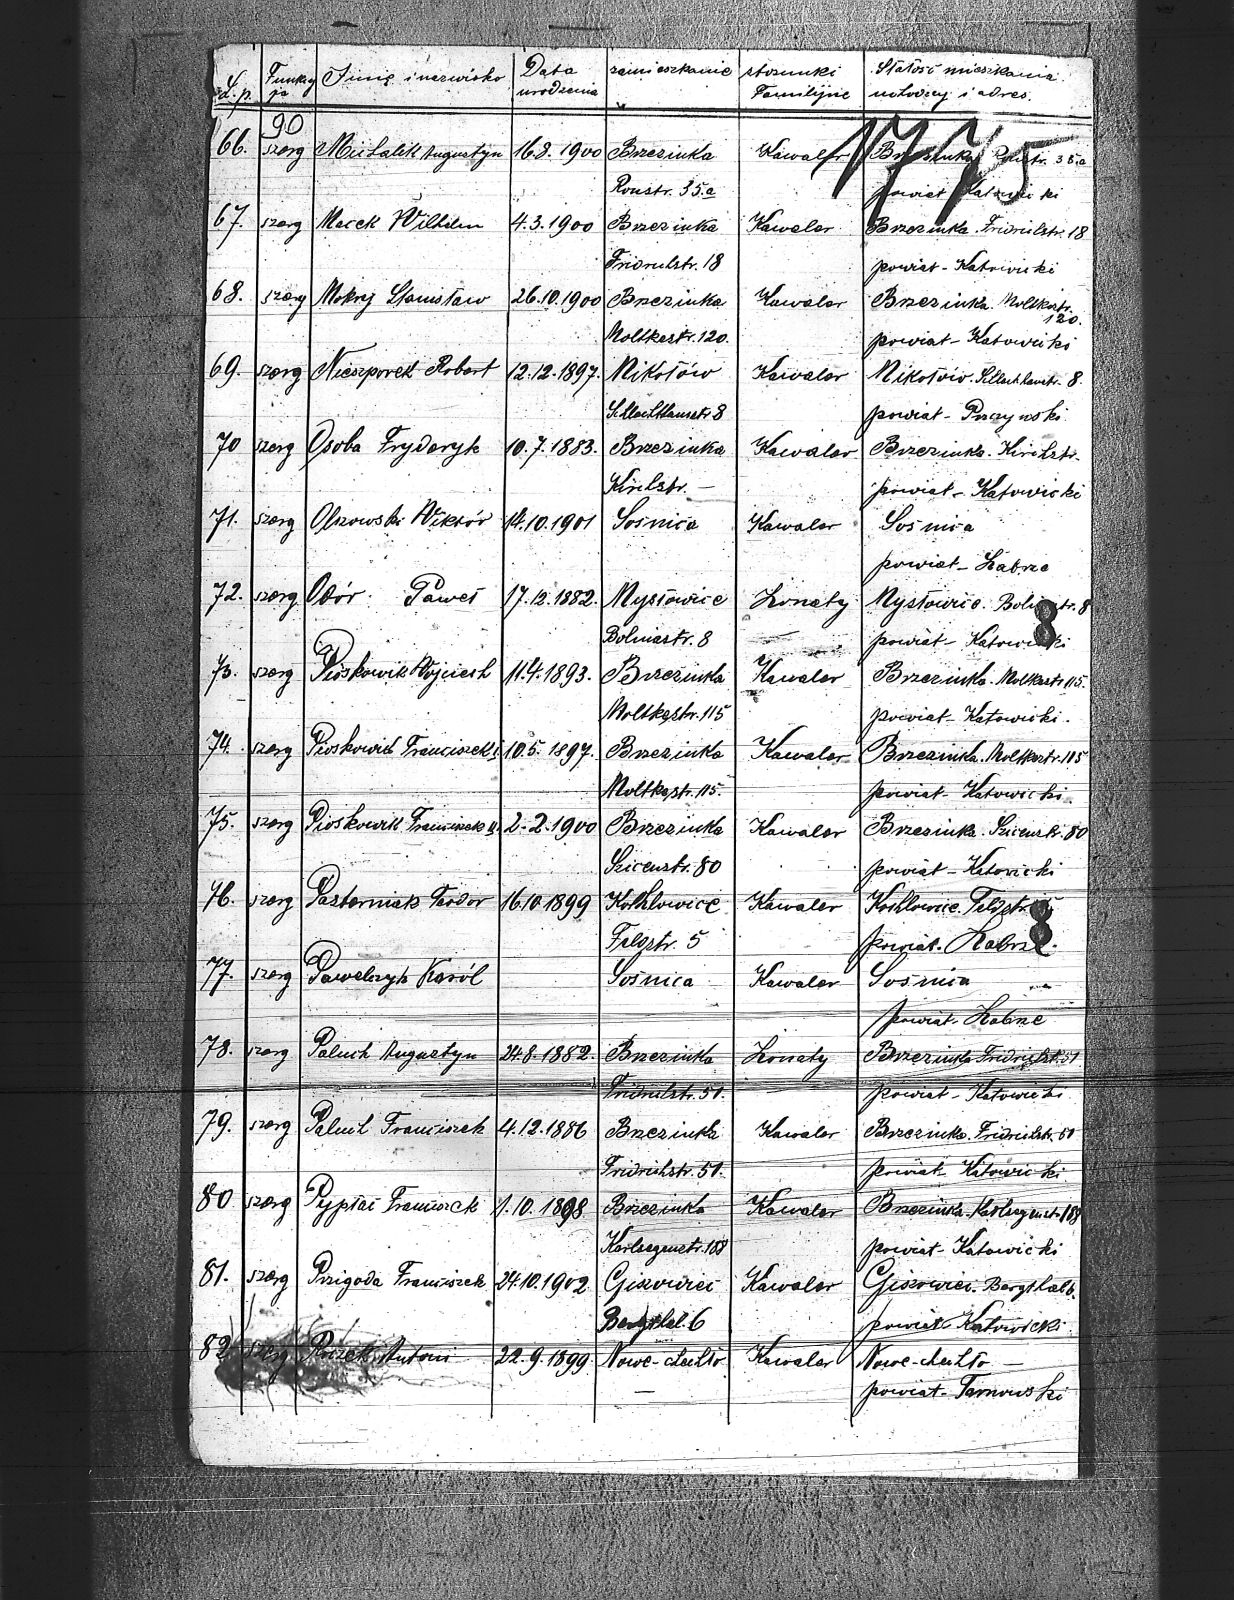 L.p. Funkcja Imię i nazwisko Data urodzenia zamieszkanie stosunki Familijne Stałość mieszkania rodziny i adres.
90 1775
66. szerg Michalik Augustyn 16.8.1900 Brzezinka Kawaler Brzezinka 35a
35.a powiat Katowicki
67. szerg Macek Wilhelm 4.3.1900 Brzezinka Kawaler Brzezinka. Fridrichstr. 18
Fridrichstr. 18 powiat - Katowicki
68. szerg Mokry Stanisław 26.10.1900 Brzezinka Kawaler Brzezinka. Moltkestr. 120.
Moltkestr. 120. powiat - Katowicki
69. szerg Nieszporek Robert 12.12.1897. Mikołów Kawaler Mikołów. 8.
8 powiat - Pszczynski
70 szerg Osoba Fryderyk 10.7.1883. Brzezinka Kawaler Brzezinka. Kirchstr.
Kirchstr. — powiat - Katowicki
71. szerg Olszowski Wiktór 14.10.1901 Sośnica Kawaler Sośnica
powiat - Zabrze
72. szerg Obór Paweł 17.12.1882. Mysłowice Żonaty Mysłowice. 8
8 powiat - Katowicki
73. szerg Pioskowik Wojciech 11.4.1893. Brzezinka Kawaler Brzezinka. Moltkestr. 115.
Moltkestr. 115 powiat - Katowicki.
74. szerg Pioskowik Franciszek I. 10.5.1897. Brzezinka Kawaler Brzezinka. Moltkestr. 115
Moltkestr. 115. powiat - Katowicki
75. szerg Pioskowik Franciszek II. 2.2.1900 Brzezinka Kawaler Brzezinka. 80
80 powiat - Katowicki
76. szerg Pasterniak Teodor 16.10.1899 Kochlowice Kawaler Kochlowice. Feldstr. 5
Feldstr. 5 powiat. Zabrze.
77. szerg Pawelczyk Karól Sośnica Kawaler Sośnica
powiat - Zabrze
78. szerg Paluch Augustyn 24.8.1882. Brzezinka Żonaty Brzezinka Fridrichstr. 51
Fridrichstr. 51. powiat - Katowicki
79. szerg Paluch Franciszek 4.12.1886 Brzezinka Kawaler Brzezinka. Fridrichstr. 51
Fridrichstr. 51. powiat - Katowicki
80 szerg Pyptać Franciszek 1.10.1898 Brzezinka Kawaler Brzezinka. Karlsegenstr. 188
Karlsegenstr. 188 powiat - Katowicki
81. szerg Przigoda Franciszek 24.10.1902 Giszowiec Kawaler Giszowiec. Bergthal 6.
Bergthal. 6 powiat - Katowicki
82 szerg Antoni 22.9.1899 Nowe - chechło Kawaler Nowe - chechło —
— powiat - Tarnowski
8
8